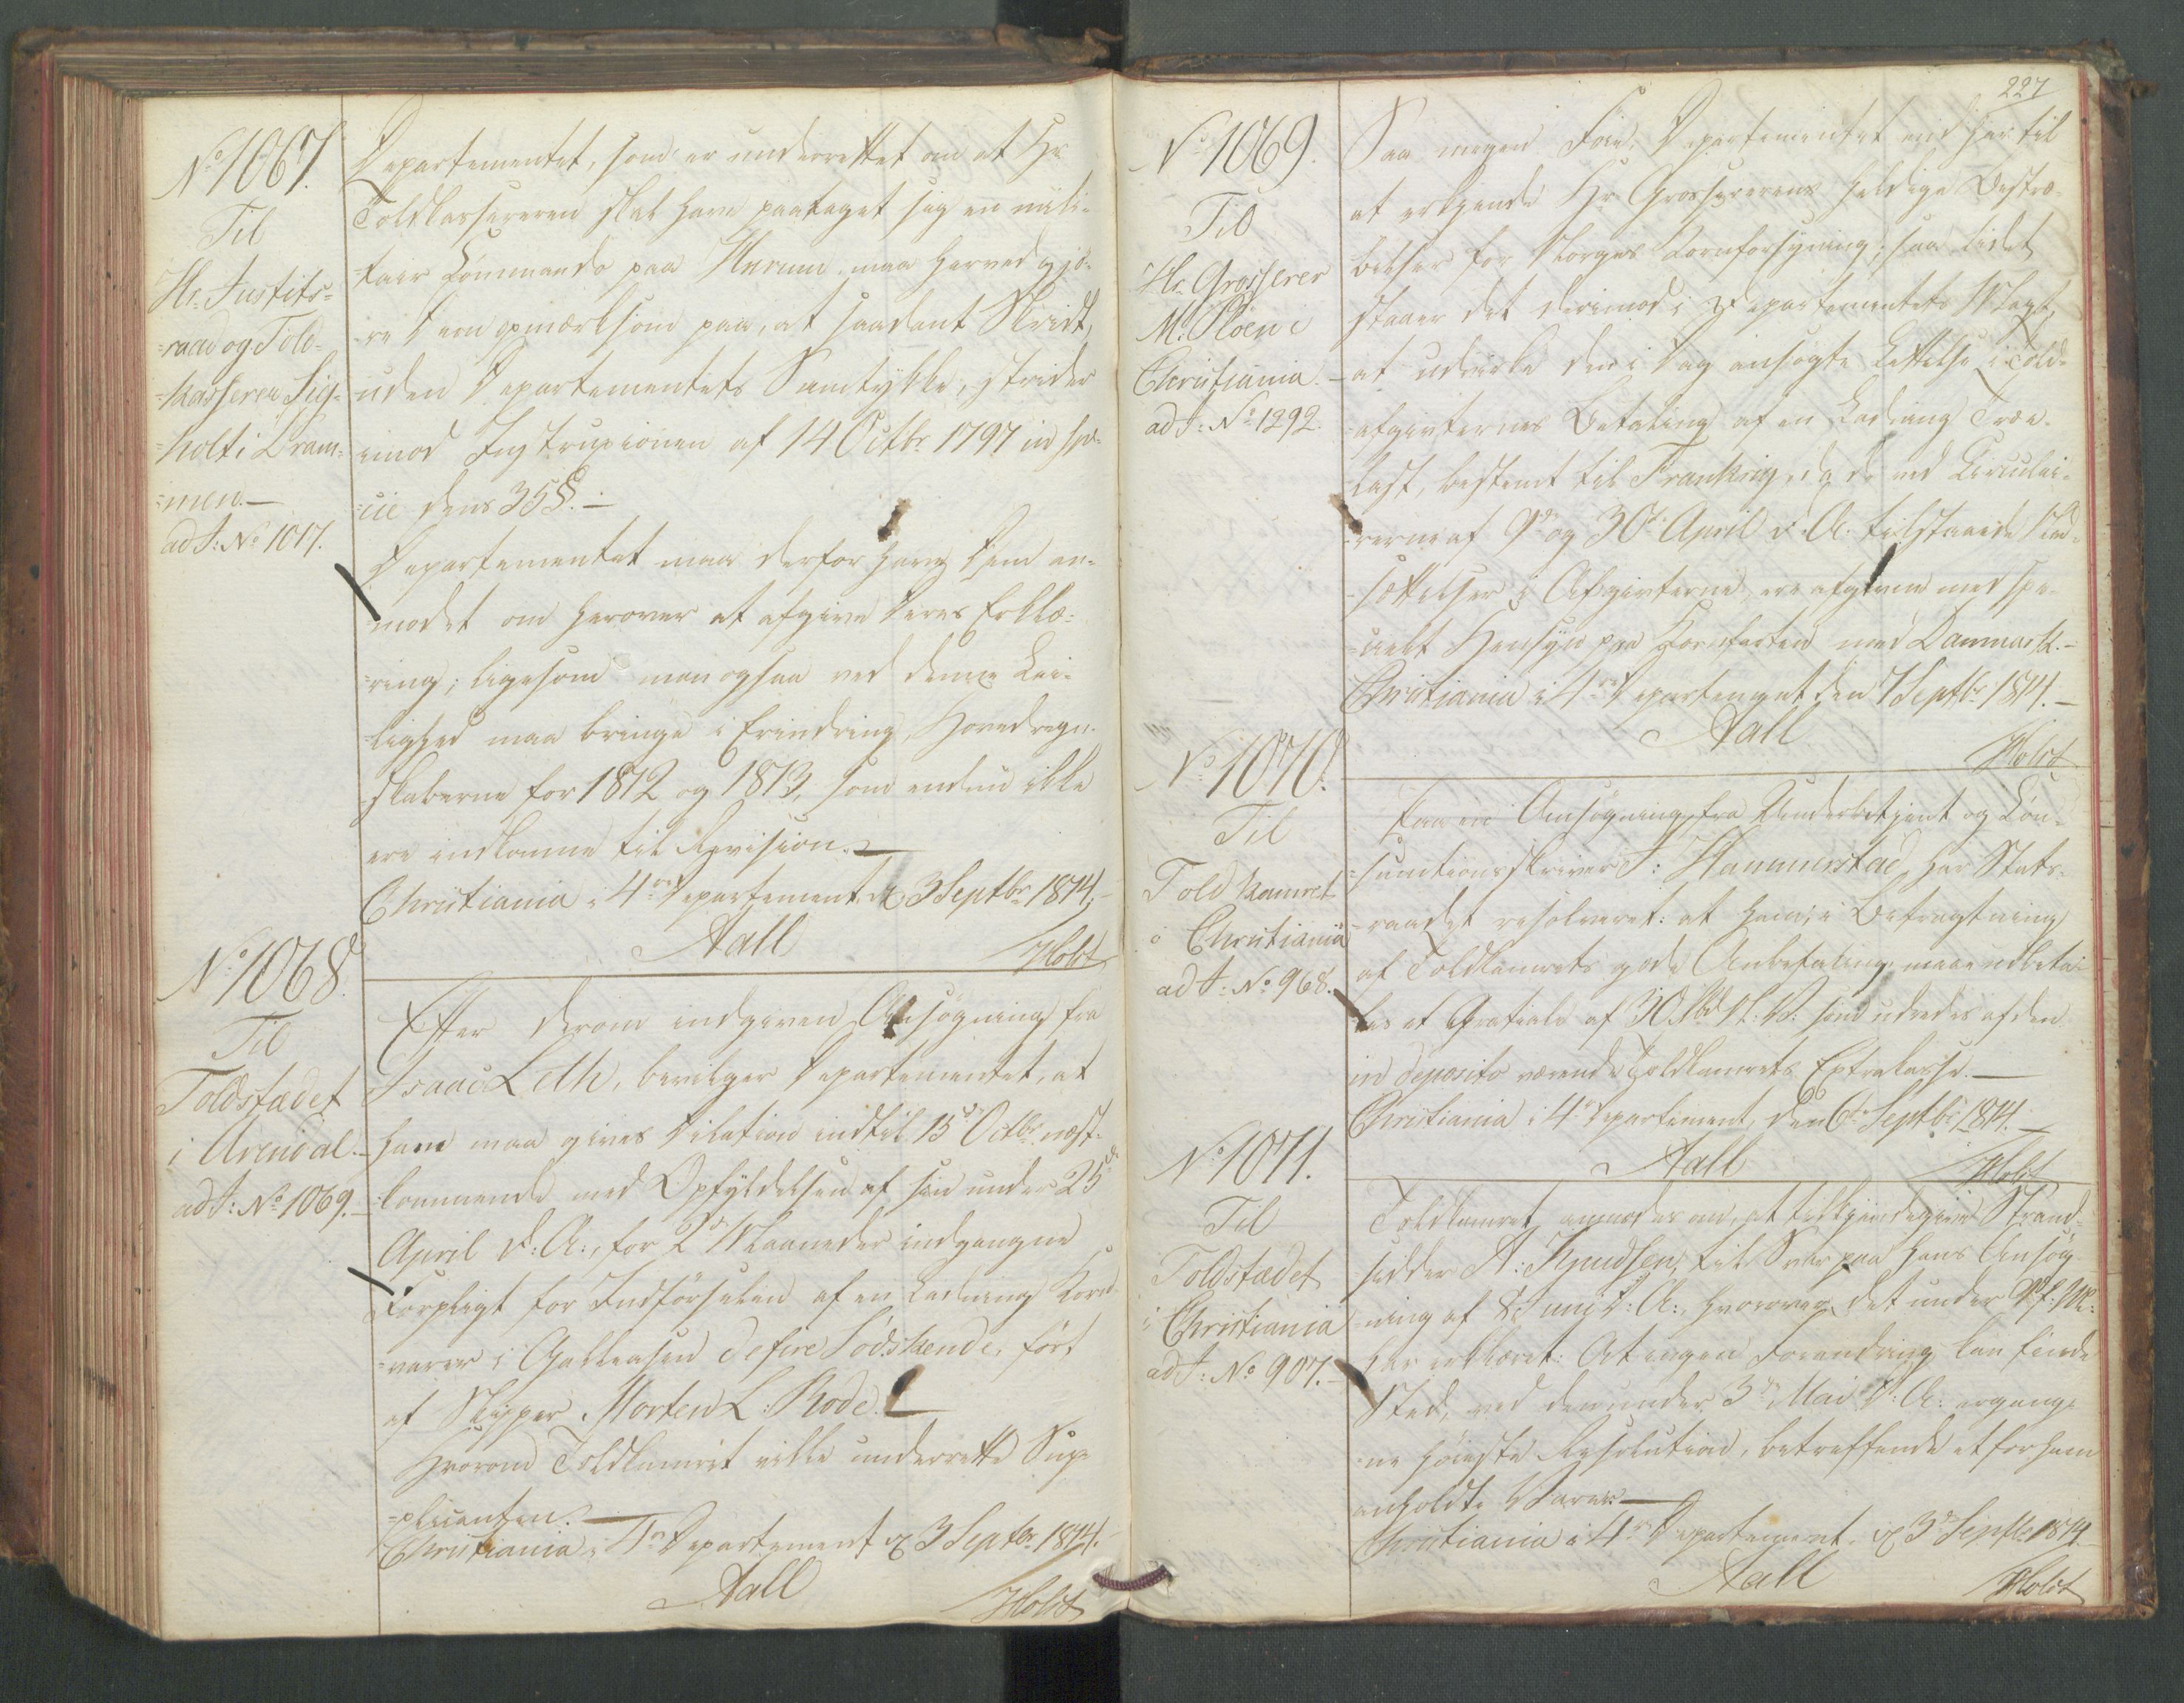 No 1067.
Til
Hr. Justits-
raad og Told-
kasserer Sig-
holt i Dram-
men.—
ad J: No 1017.
Departementet, som er underrettet om at Hr
Toldkassereren skal have paataget sig en mili-
tair Commando paa Hurum, maa herved gjö-
re Dem opmærksom paa, at saadant Skridt,
uden Departementets Samtykke, strider
imod Instruxionen af 14 Octbr 1797 in spe-
cie dens 35 §.—
Departementet maa derfor have Dem an-
modet om herover at afgive Deres Erklæ-
ring; ligesom man ogsaa ved denne Lei-
lighed maa bringe i Erindring, Hovedregn-
skaberne for 1812 og 1813, som endnu ikke
ere indkomne til Revision.—
Christiania i 4de Departement d 3 Septbr 1814.
Aall
Holst
No 1068.
Til
Toldstædet
i Arendal.
ad J: No 1069.
Efter derom indgiven Ansögning fra
Isaac Leth, bevilger Departementet, at
ham maa gives Dilation indtil 15de Octbr næst-
kommende med Opfyldelsen af sin under 25de
April d: A:, for 2de Maaneder indgangne
Forpligt for Indförselen af en Ladning Korn-
varer i Galleasen de fire Södskende, fört
af Skipper Morten L: Rode.
Hvorom Toldkamret ville underrette Sup-
plicanten.—
Christiania i 4de Departement d 3 Septbr 1814.
Aall
Holst
227
No 1069.
Til
Hr. Grosserer
M. Ploen i
Christiania.
ad J: No 1292.
Saa megen Föie Departementet end har til
at erkjende Hr. Grossererens heldige Bestræ-
belser for Norges Kornforsyning; saa lidet
staaer det derimod i Departementets Magt,
at udvirke den i Dag ansögte Lettelse i Told-
afgivternes Betaling af en Ladning Træe-
last, bestemt til Frankrig, da de ved Circulai-
rerne af 9de og 30de April d: A: tilstaaede Ned-
sættelser i Afgivterne, ere afgivne med spe-
cielt Hensyn paa Kornfarten med Danmark.—
Christiania i 4de Departement den 7 Septbr 1814.—
Aall
Holst
No 1070.
Til
Toldkamret
i Christiania
ad J: No 968.
Paa en Ansögning fra Underbetjent og Con-
sumtionsskriver J: Hammerstad, har Stats-
raadet resolveret: at ham, i Betragtning
af Toldkamrets gode Anbefaling maae udbeta-
les et Gratiale af 30 Rbd N. V. som udredes af den
in deposito værende Toldkamrets Extrakasse.—
Christiania i 4de Departement, den 6te Septbr 1814.
Aall
Holst
No 1071.
Til
Toldstædet
i Christiania
ad J: No 907.
Toldkamret anmodes om, at tilkjendegive Strand-
sidder A: Knudsen, til Svar paa hans Ansög-
ning af 8 Juni d: A:, hvorover det under
har erklæret: At ingen Forandring kan finde
Sted, ved den under 3de Mai d: A: ergang-
ne höieste Resolution, betreffende et for ham
anholdte Varer.—
Christiania i 4de Departement, d 3de Septbr 1814.
Aall
Holst